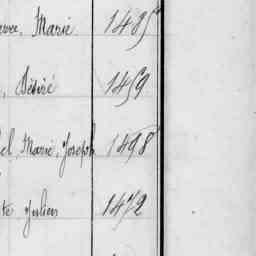 Marie 1485
, Désiré 1459
el, Marie, Joseph 1498
te, Julien 1472